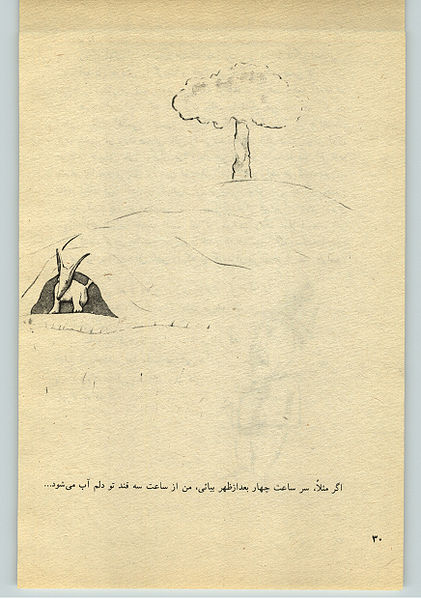 اگر مثلاً، سر ساعت چهار بعدازظهر بیائی، من از ساعت سه قند تو دلم آب می‌شود...
۳۰